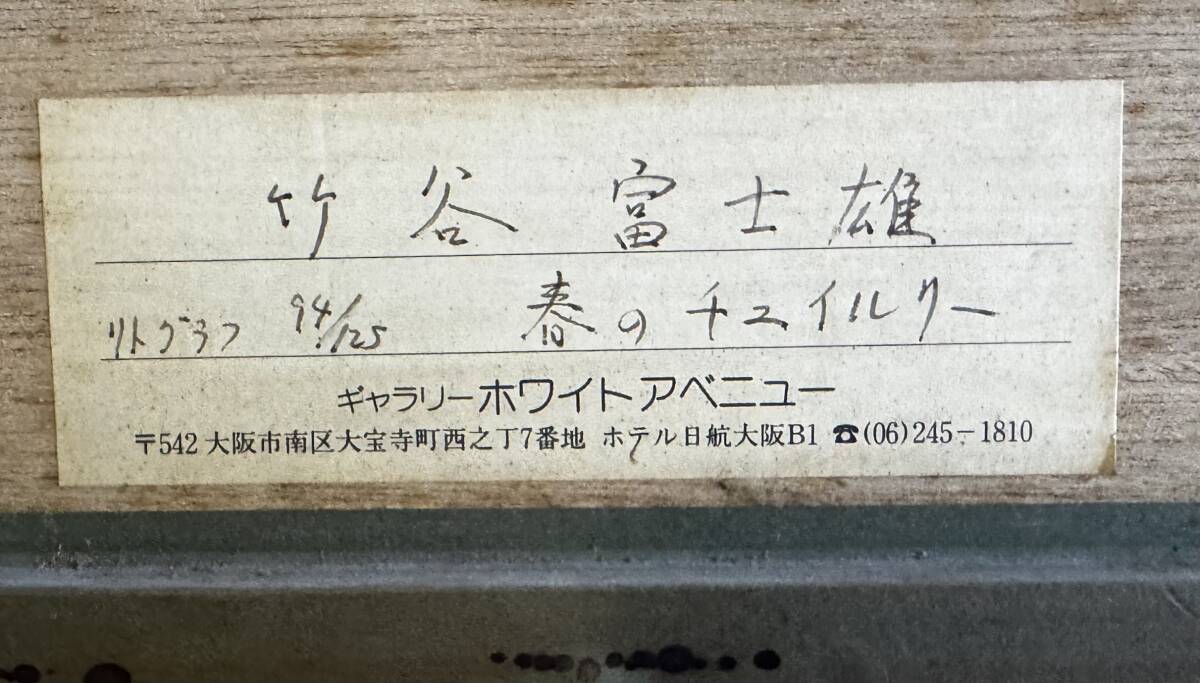 竹谷 富士雄
リトグラフ 94/125 春のチュイルリー
ギャラリーホワイトアベニュー
〒542 大阪市南区大宝寺町西之丁7番地 ホテル日航大阪B1 ☎(06)245-1810